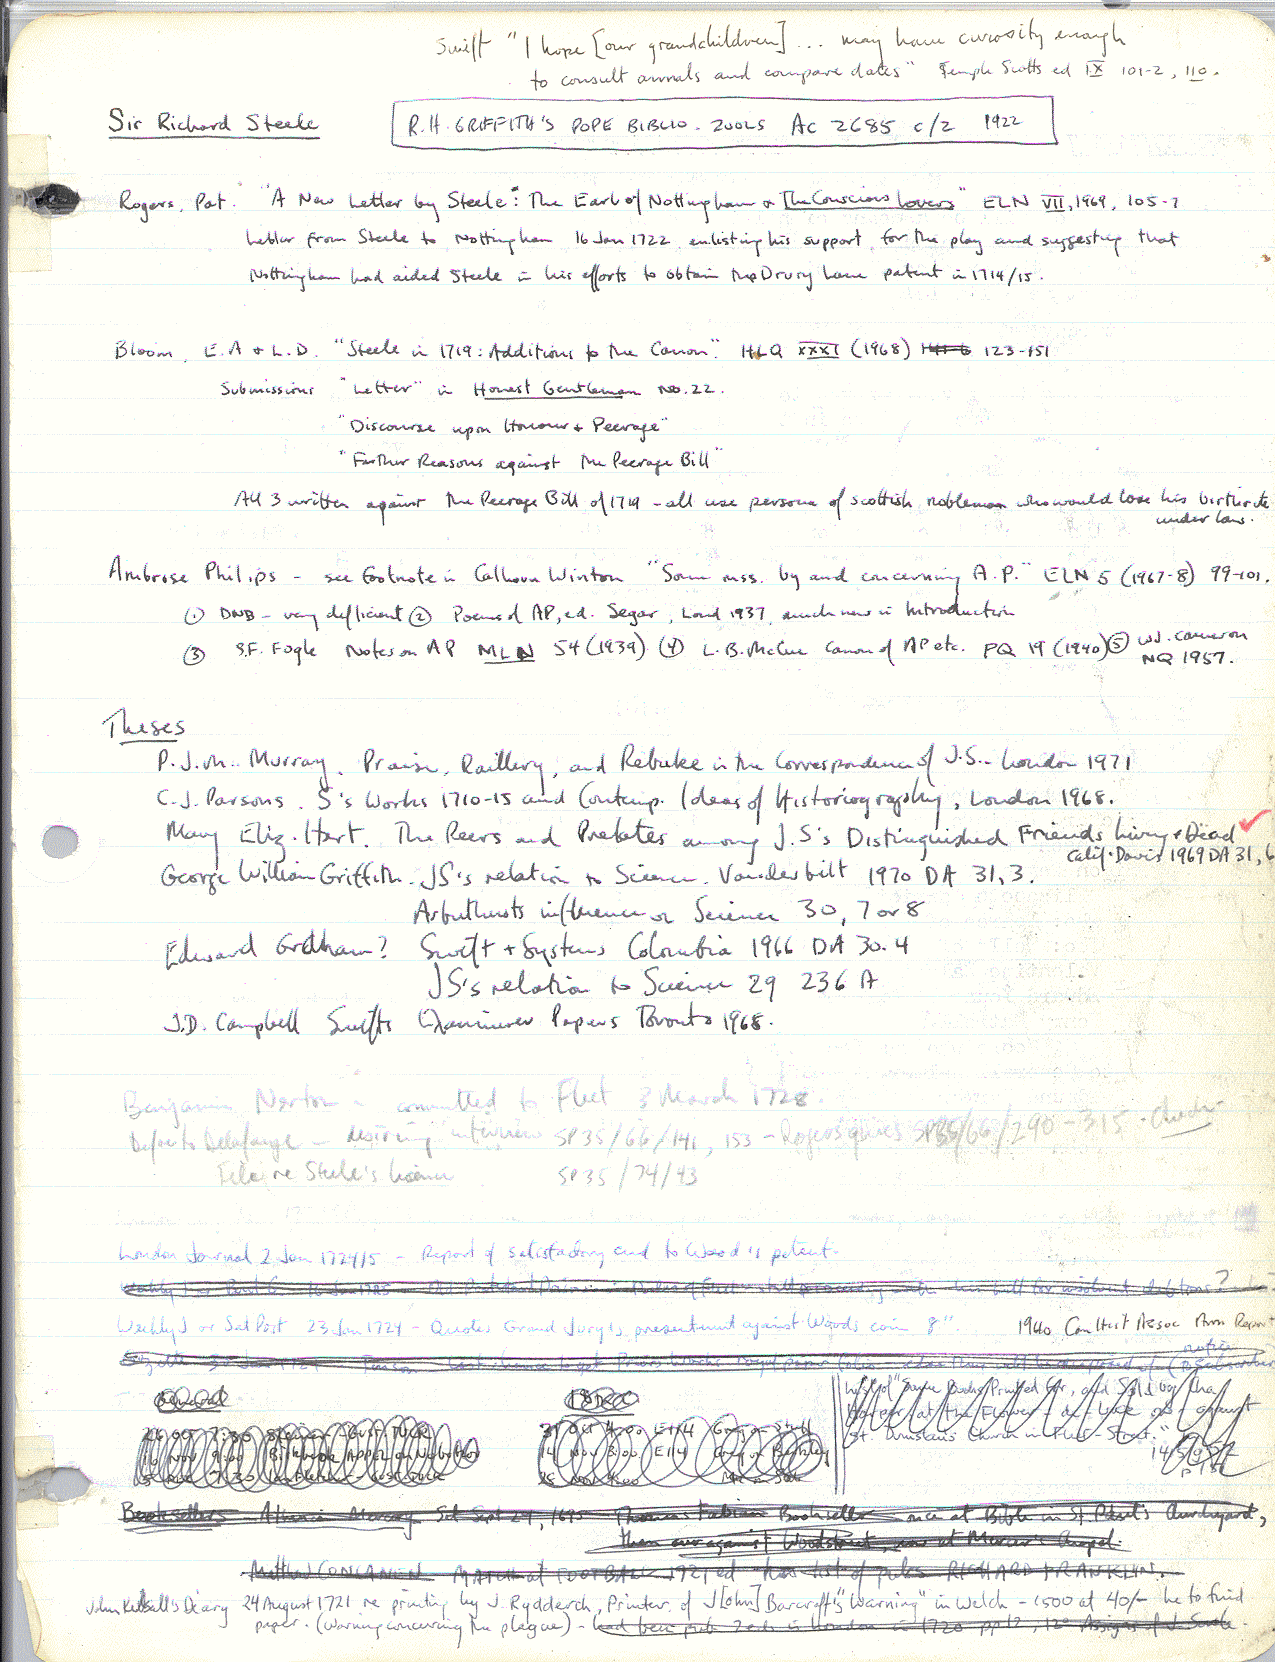 Swift "I hope [our grandchildren] ... may have curiosity enough
to consult annals and compare dates" Temple Scotts ed IX 101-2, 110.
Sir Richard Steele
R.H. GRIFFITH'S POPE BIBLIO. ZOOLS Ac 2685 c/2 1922
Rogers, Pat. "A New Letter by Steele: The Earl of Nottingham & The Conscious Lovers" ELN VII, 1969, 105-7
Letter from Steele to Nottingham 16 Jan 1722 enlisting his support for the play and suggesting that
Nottingham had aided Steele in his efforts to obtain the Drury Lane patent in 1714/15.
Bloom, E.A & L.D. "Steele in 1719: Additions to the Canon". HLQ XXXI (1968) 123-151
Submissions "Letter" in Honest Gentleman No. 22.
"Discourse upon Honour & Peerage"
"Further Reasons against the Peerage Bill"
All 3 written against the Peerage Bill of 1719 - all use persona of scottish nobleman who would lose his birthrite
under law.
Ambrose Philips - see footnote in Calhoun Winton "Some mss. by and concerning A.P." ELN 5 (1967-8) 99-101.
① DNB - very deficient ② Poems of AP, ed. Segar, Lond 1937, much new in Introduction
③ S.F. Fogle Notes on AP MLN 54 (1939) ④ L.B. McCue Canon of AP etc. PQ 19 (1940) ⑤ W.J. Cameron
NQ 1957.
Theses
P.J.M. Murray. Praise, Raillery, and Rebuke in the Correspondence of J.S. - London 1971
C.J. Parsons. S's Works 1710-15 and Contemp. Ideas of Historiography, London 1968.
Mary Eliz. Hart. The Peers and Prelates among J.S's Distinguished Friends Living & Dead
Calif. Davis 1969 DA 31, 6
George William Griffith. JS's relation to Science. Vanderbilt 1970 DA 31, 3.
Arbuthnots influence on Science 30, 7 or 8
Edward Graham? Swift & Systems Columbia 1966 DA 30.4
JS's relation to Science 29 236 A
J.D. Campbell Swifts Examiner Papers Toronto 1968.
Benjamin Norton - committed to Fleet 3 March 1728.
Defoe to Delafaye - desiring interview SP 35/66/141, 153 - Rogers gives SP35/66/290-315 - Check
File re Steele's licence SP 35/74/43
London Journal 2 Jan 1724/5 - Report of satisfactory end to Wood's patent.
Weekly J or Sat Post 23 Jan 1724 - Quotes Grand Jury's presentment against Woods coin 8".
1940 Can Hist Assoc Ann Report
notice
List of "Some Books Printed for, and Sold by
at the Flower-de-Luce against
St. Dunstan's Church in Fleet-Street."
Booksellers Athenian Mercury Sat Sept 29, 1695 Thomas Fabian Bookseller once at Bible in St Paul's Churchyard,
then over against Woodstreet, now at Mercer's Chapel.
Matthew CONCANEN MATCH at FOOTBALL 1721 ed has list of pubs RICHARD FRANKLIN.
Diary 24 August 1721 re printing by J. Rydderch, Printer of J[ohn] Barcroft's "Warning" in Welch - 1500 at 40/- he to find
paper. (Warning concerning the plague) - had been pub 2 eds in London in 1720 pp 12, 12º Assigns of J. Sowle.